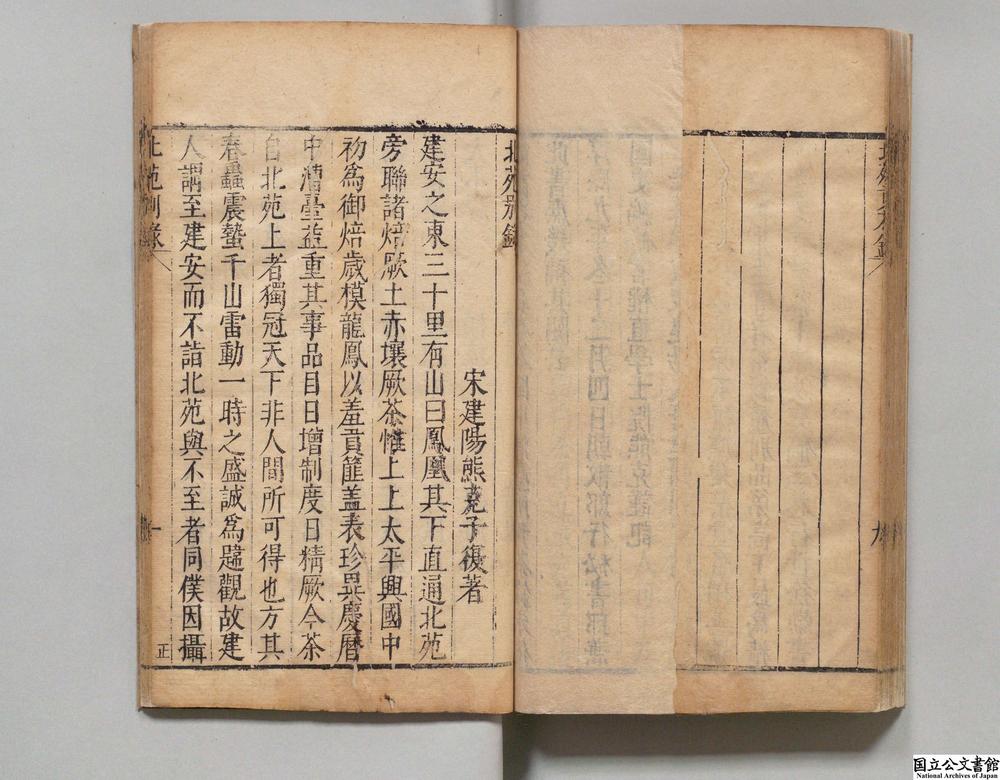 北苑別錄
宋建陽熊克子復著
建安之東三十里有山曰鳳凰其下直通北苑
旁聯諸焙厥土赤壤厥茶惟上上太平興國中
初為御焙歲模龍鳳以羞貢篚蓋表珍異慶曆
中漕臺益重其事品目日增制度日精厥今茶
自北苑上者獨冠天下非人間所可得也方其
春蟲震蟄千山雷動一時之盛誠為趩觀故建
人謂至建安而不詣北苑與不至者同僕因攝
北苑別錄
一
正
国立公文書館
National Archives of Japan